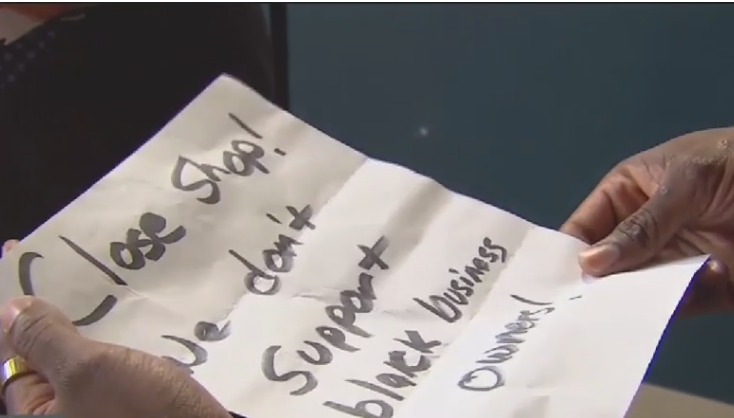 Close Shop!
We don't
Support
black business
Owners!